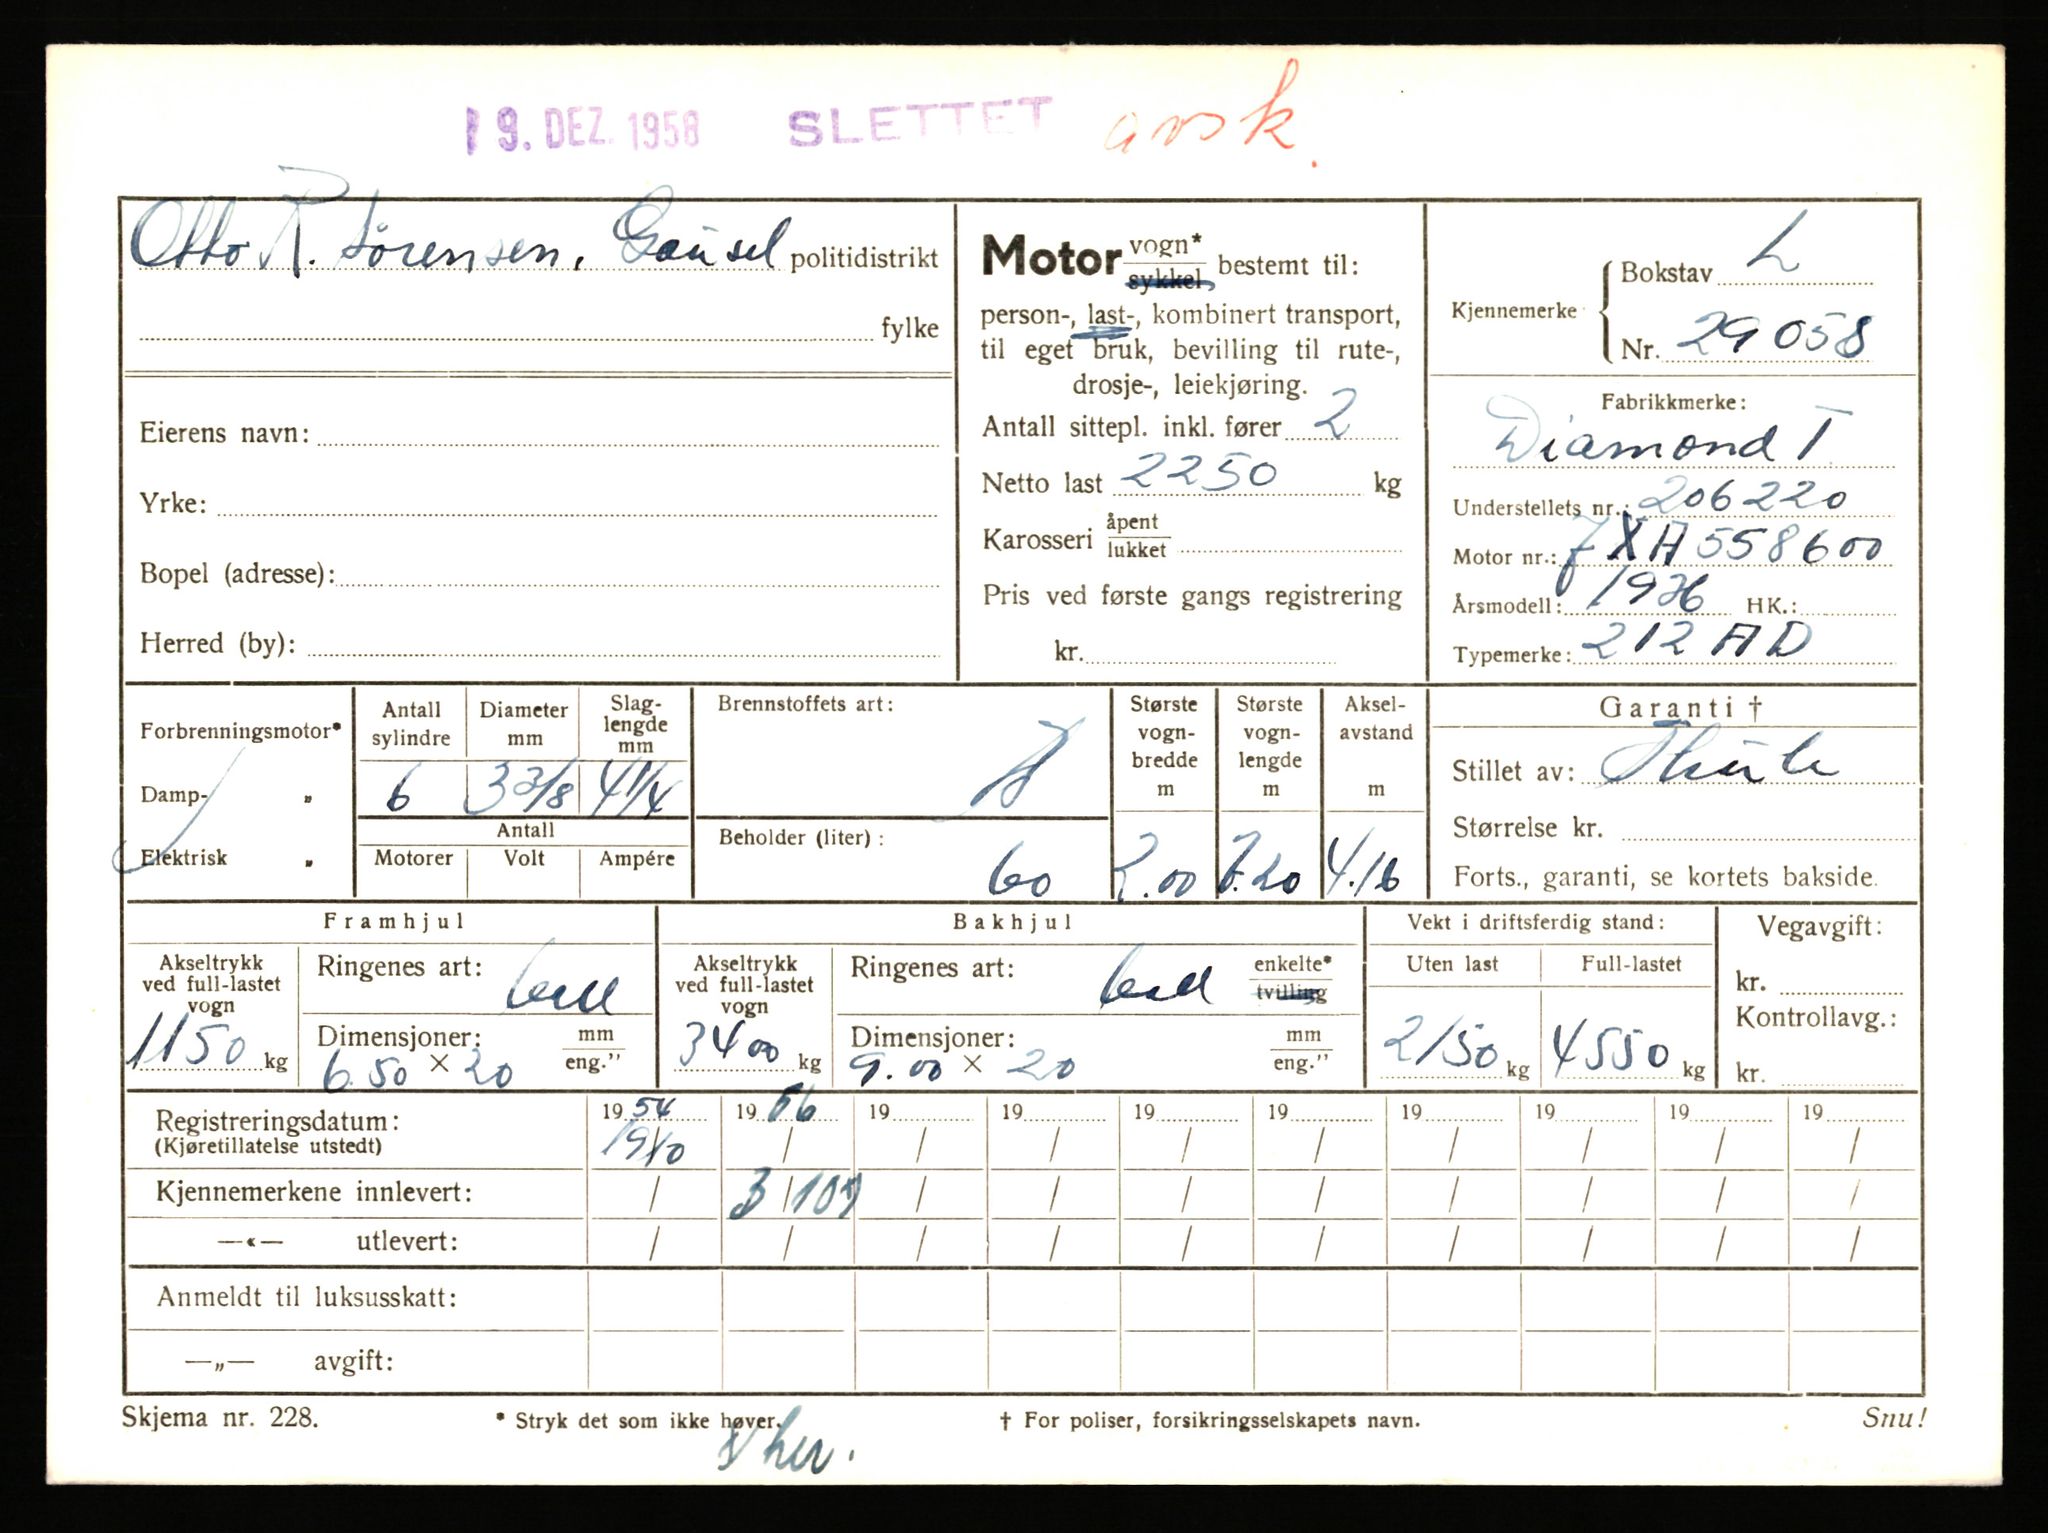 19. DEZ. 1958 SLETTET avsk.
Otto R. Sørensen, Gausel politidistrikt
fylke
Eierens navn:
Yrke:
Bopel (adresse):
Herred (by):
Motor vogn* / sykkel bestemt til:
person-, last-, kombinert transport,
til eget bruk, bevilling til rute-,
drosje-, leiekjøring.
Antall sittepl. inkl. fører 2
Netto last 2250 kg
Karosseri åpent / lukket
Pris ved første gangs registrering
kr.
Kjennemerke Bokstav L
Nr. 29058
Fabrikkmerke:
Diamond T
Understellets nr.: 206220
Motor nr.: 7XA558600
Årsmodell: 1936 HK.:
Typemerke: 212 AD
Forbrenningsmotor*
Damp- „
Elektrisk „
Antall sylindre 6
Diameter mm 3 3/8
Slaglengde mm 4 1/4
Antall
Motorer Volt Ampére
Brennstoffets art:
Beholder (liter): 60
Største vognbredde m 2.00
Største vognlengde m 7.20
Akselavstand m 4.16
Garanti †
Stillet av: Thule
Størrelse kr.
Forts., garanti, se kortets bakside.
Framhjul
Akseltrykk ved full-lastet vogn 1150 kg
Ringenes art:
Dimensjoner: mm / eng."
6.50 × 20
Bakhjul
Akseltrykk ved full-lastet vogn 3400 kg
Ringenes art: enkelte* / tvilling
Dimensjoner: mm / eng."
9.00 × 20
Vekt i driftsferdig stand:
Uten last 2150 kg
Full-lastet 4550 kg
Vegavgift:
kr.
Kontrollavg.:
kr.
Registreringsdatum: 19 54 19 56 19 19 19 19 19 19 19 19
(Kjøretillatelse utstedt) 19/10 / / / / / / / / /
Kjennemerkene innlevert: / 3/10 / / / / / / / /
—«— utlevert: / / / / / / / / / /
Anmeldt til luksusskatt:
—„— avgift:
Skjema nr. 228. * Stryk det som ikke høver. † For poliser, forsikringsselskapets navn. Snu!